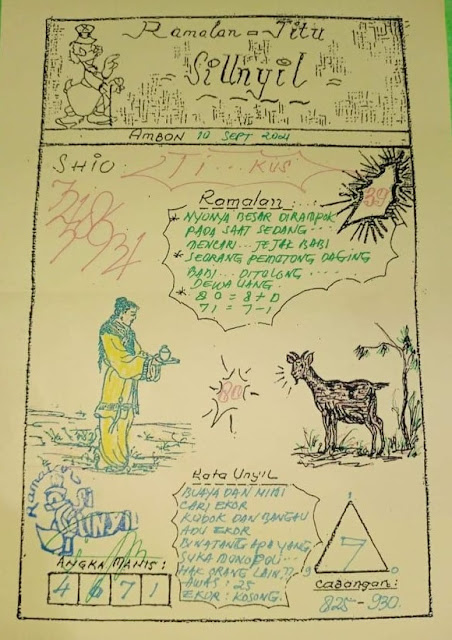 Ramalan - Jitu
SiUnyil
AMBON 10 SEPT 2021
SHIO
Ti... KUS
39
Ramalan
* NYONYA BESAR DIRAMPOK
PADA SAAT SEDANG
MENCARI... JEJAK BABI
* SEORANG PEMOTONG DAGING
BABI... DITOLONG....
DEWA UANG.
* 80 = 8 + 0
71 = 7 - 1
80
Kata Unyil
BUAYA DAN MIMI
CARI EKOR
KODOK DAN BANGAU
ADU EKOR
BINATANG APA YANG
SUKA MONOPOLI
HAK ORANG LAIN??
AWAS : 25
EKOR : KOSONG.
Ramalan
SI
UNYIL
ANGKA MANIS :
4 6 7 1
1
7
9
0
Cadangan :
825 - 930.